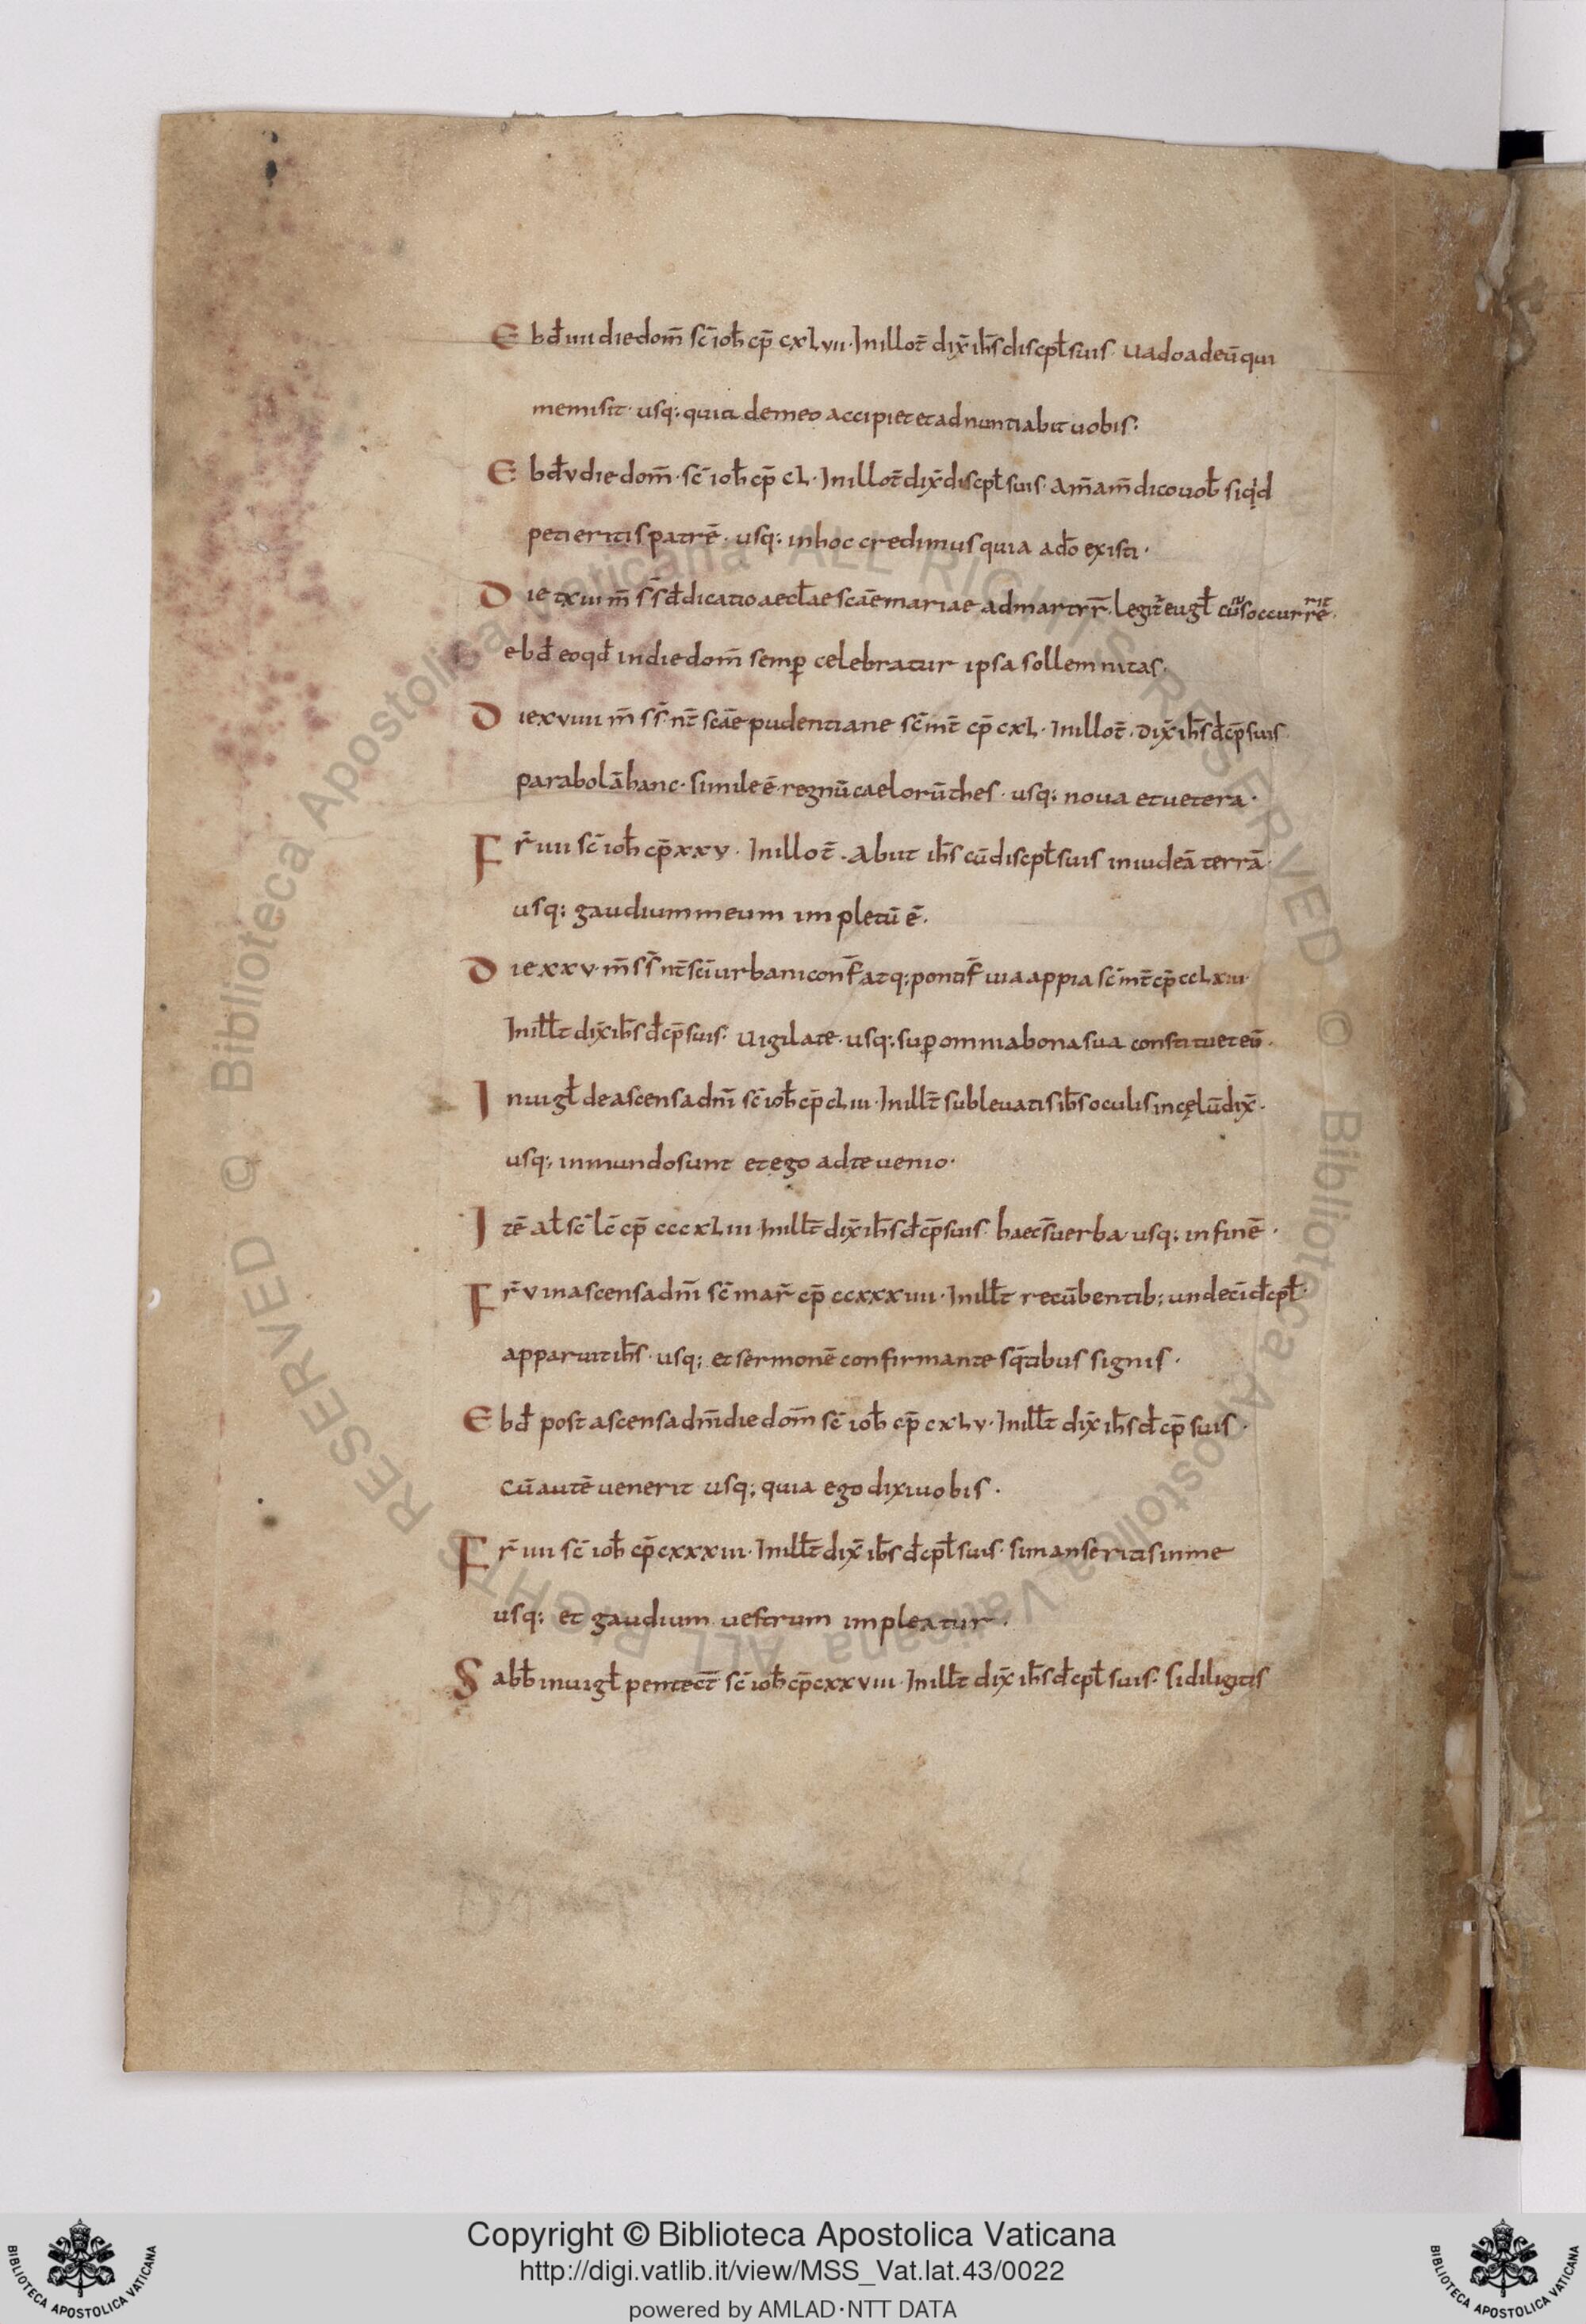 Ebđ iiii die dom̄ sc̄ ioħ cp̄ cxlvii· In illo t̄ dix̄ ih̄s discpłsuis· Uado ad eū qui
me misit· usq; quia de meo accipiet et adnuntiabit uobis;
Ebđ v die dom̄· sc̄ ioħ cp̄ cl· In illo t̄ dix̄ discpł suis· Am̄ am̄ dico uoƀ siqd
petieritis patrē· usq; in hoc credimus quia a dō existi·
Die m̄ s s̄ đdicatio aecłae scāe mariae ad martyr̄· Legit̄ eugł
ebđ eo qđ in die dom̄ semp celebratur ipsa sollemnitas·
Die xviiii m̄ s s̄ nt̄ scāe pudentiane sc̄ mt̄ cp̄ cxl· In illo t̄· dix̄ ih̄s đcp̄ suis
parabolā hanc· simile ē regnū caelorū thes· usq; noua et uetera·
Fr̄ iiii sc̄ ioħ cp̄ xxv· In illo t̄· Abiit ih̄s cū discpł suis in iudeā terrā·
usq; gaudium meum impletū ē·
Die xxv· m̄ s s̄ nt̄ sc̄i urbani conf̄ atq; pontif̄ uia appia sc̄ mt̄ cp̄ cclxiii·
In ilł t dix̄ ih̄s đcp̄ suis· Uigilate· usq; sup omnia bona sua constituet eū·
In uigł de ascensa dn̄i sc̄ ioħ cp̄ cliii· In ill t̄ subleuatis ih̄s oculis in cęlū dix̄·
usq; in mundo sunt et ego ad te uenio·
Itē ał sc̄ lc̄ cp̄ cccxliii· In ilł t̄ dix̄ ih̄s đcp̄ suis· haec s̄ uerba· usq; in finē·
Fr̄ v in ascensa dn̄i sc̄ mar̄ cp̄ ccxxxiiii· In ilł t recūbentib; undeci đcpł·
apparuit ih̄s· usq; et sermonē confirmante sq̄tibus signis·
Ebđ post ascensa dn̄i die dom̄ sc̄ ioħ cp̄ cxlv· In ilł t dix̄ ih̄s đcp̄ suis·
cū autē uenerit usq; quia ego dixi uobis·
Fr̄ iiii sc̄ ioħ cp̄ cxxxiii· In ilł t dix̄ ih̄s đcpł suis· si manseritis in me
usq; et gaudium uestrum impleatur·
Sabƀ in uigł pentect̄ sc̄ ioħ cp̄ cxxviii· In ilł t dix̄ ih̄s đcpł suis· si diligitis
© Biblioteca Apostolica Vaticana ALL RIGHTS RESERVED © Biblioteca Apostolica Vaticana ALL RIGHTS RESERVED
BIBLIOTECA APOSTOLICA VATICANA
Copyright © Biblioteca Apostolica Vaticana
http://digi.vatlib.it/view/MSS_Vat.lat.43/0022
powered by AMLAD·NTT DATA
BIBLIOTECA APOSTOLICA VATICANA